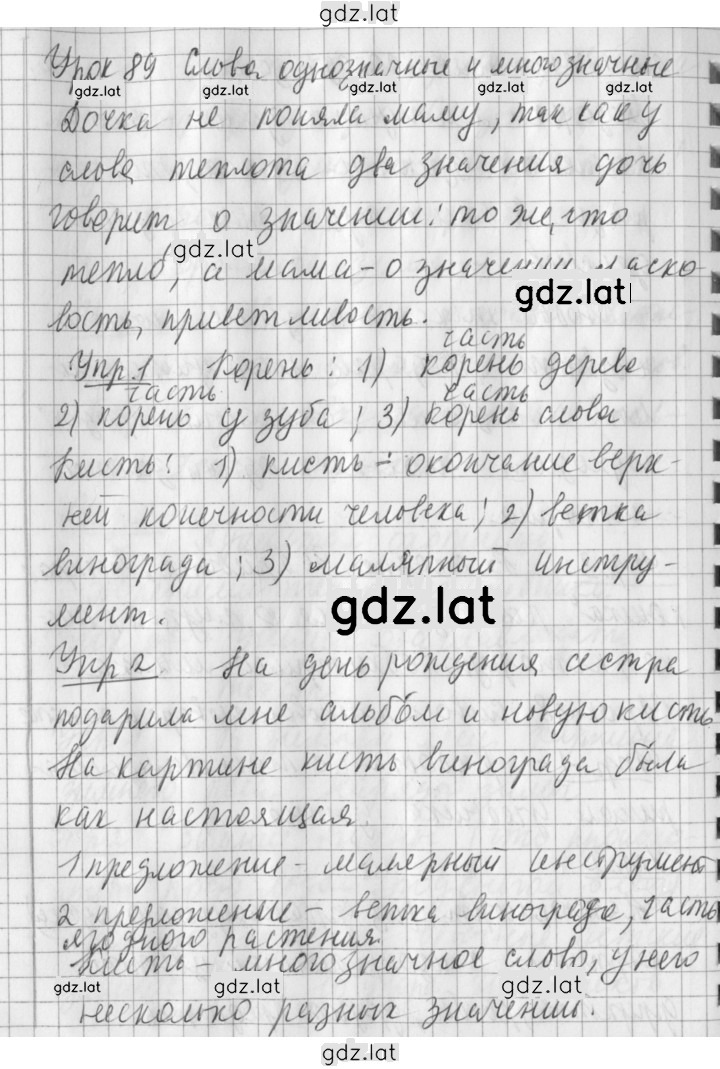 gdz.lat
Урок 89 Слова однозначные и многозначные
gdz.lat gdz.lat gdz.lat gdz.lat gdz.lat
Дочка не поняла маму, так как у
слова теплота два значения дочь
говорит о значении: то же, что
gdz.lat
тепло, а мама - о значении ласко
gdz.lat
вость, приветливость.
часть
Упр.1 Корень: 1) корень дерева
часть часть
2) корень у зуба; 3) корень слова
Кисть: 1) кисть - окончание верх-
ней конечности человека; 2) ветка
винограда; 3) малярный инстру-
мент.
gdz.lat
Упр 2. На день рождения сестра
подарила мне альбом и новую кисть
На картине кисть винограда была
как настоящая.
1 предложение - малярный инструмент
2 предложение - ветка винограда, часть
ягодного растения
Кисть - многозначное слово, у него
gdz.lat gdz.lat gdz.lat gdz.lat
несколько разных значений.
gdz.lat